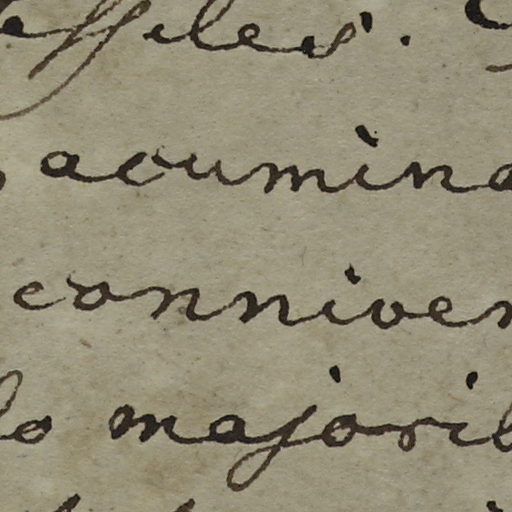 essiles.
acumina
conniven
lo majorib